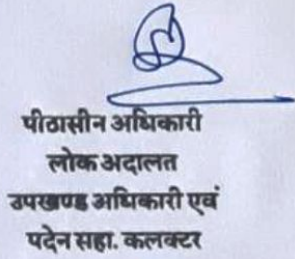 पीठासीन अधिकारी
लोक अदालत
उपखण्ड अधिकारी एवं
पदेन सहा. कलक्टर